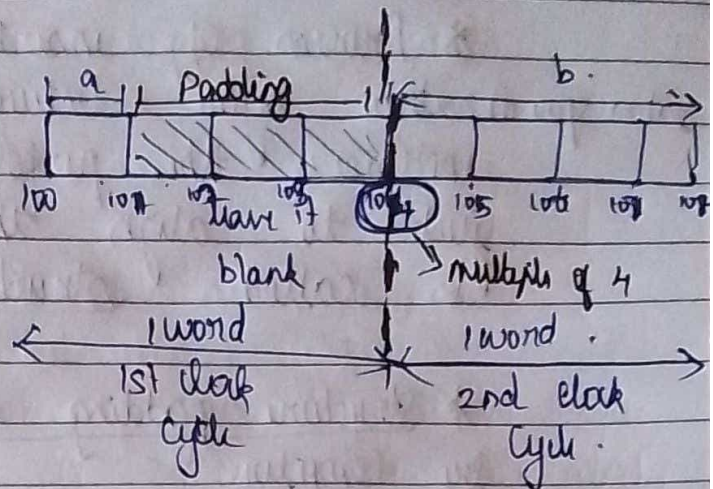 a Padding b.
100 101 102 103 104 105 106 107 108
Leave it
blank. multiple of 4
1 word 1 word.
1st clock 2nd clock
cycle cycle.